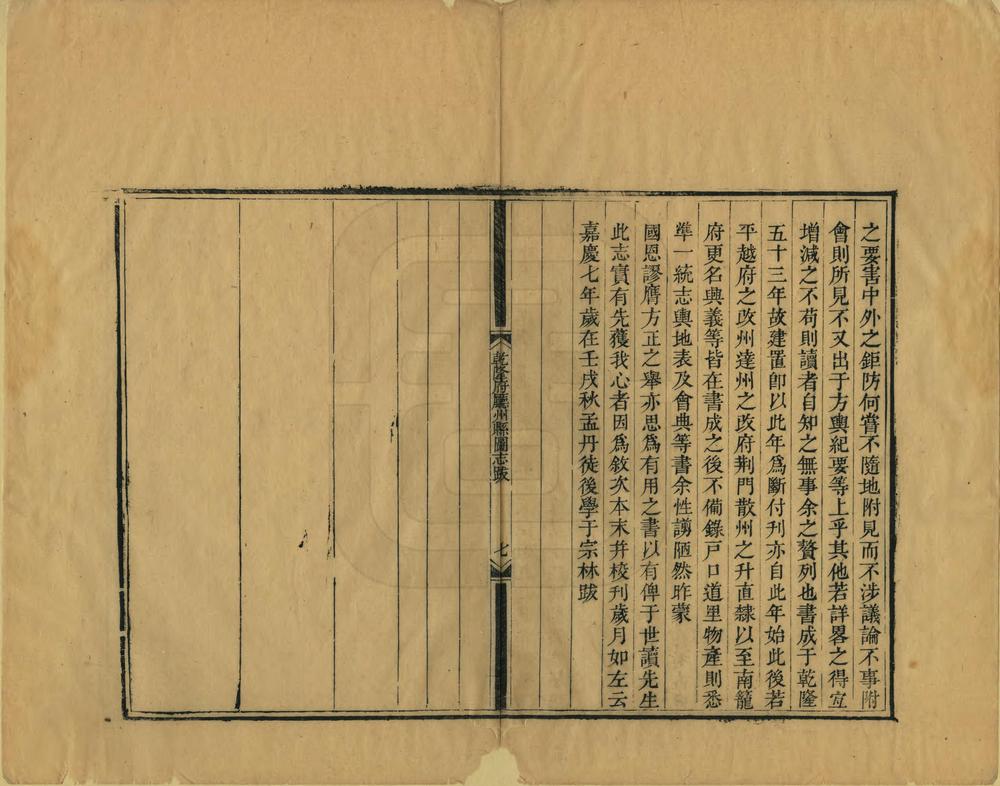 之要害中外之鉅防何嘗不隨地附見而不涉議論不事附
會則所見不又出于方輿紀要等上乎其他若詳畧之得宜
增減之不苟則讀者自知之無事余之贅列也書成于乾隆
五十三年故建置卽以此年爲斷付刊亦自此年始此後若
平越府之改州達州之改府荆門散州之升直隸以至南籠
府更名興義等皆在書成之後不備錄戸口道里物產則悉
準一統志輿地表及會典等書余性謭陋然昨蒙
國恩謬膺方正之舉亦思爲有用之書以有俾于世讀先生
此志實有先獲我心者因爲敘次本末幷校刊歲月如左云
嘉慶七年歲在壬戌秋孟丹徒後學于宗林跋
乾隆府廳州縣圖志跋
七